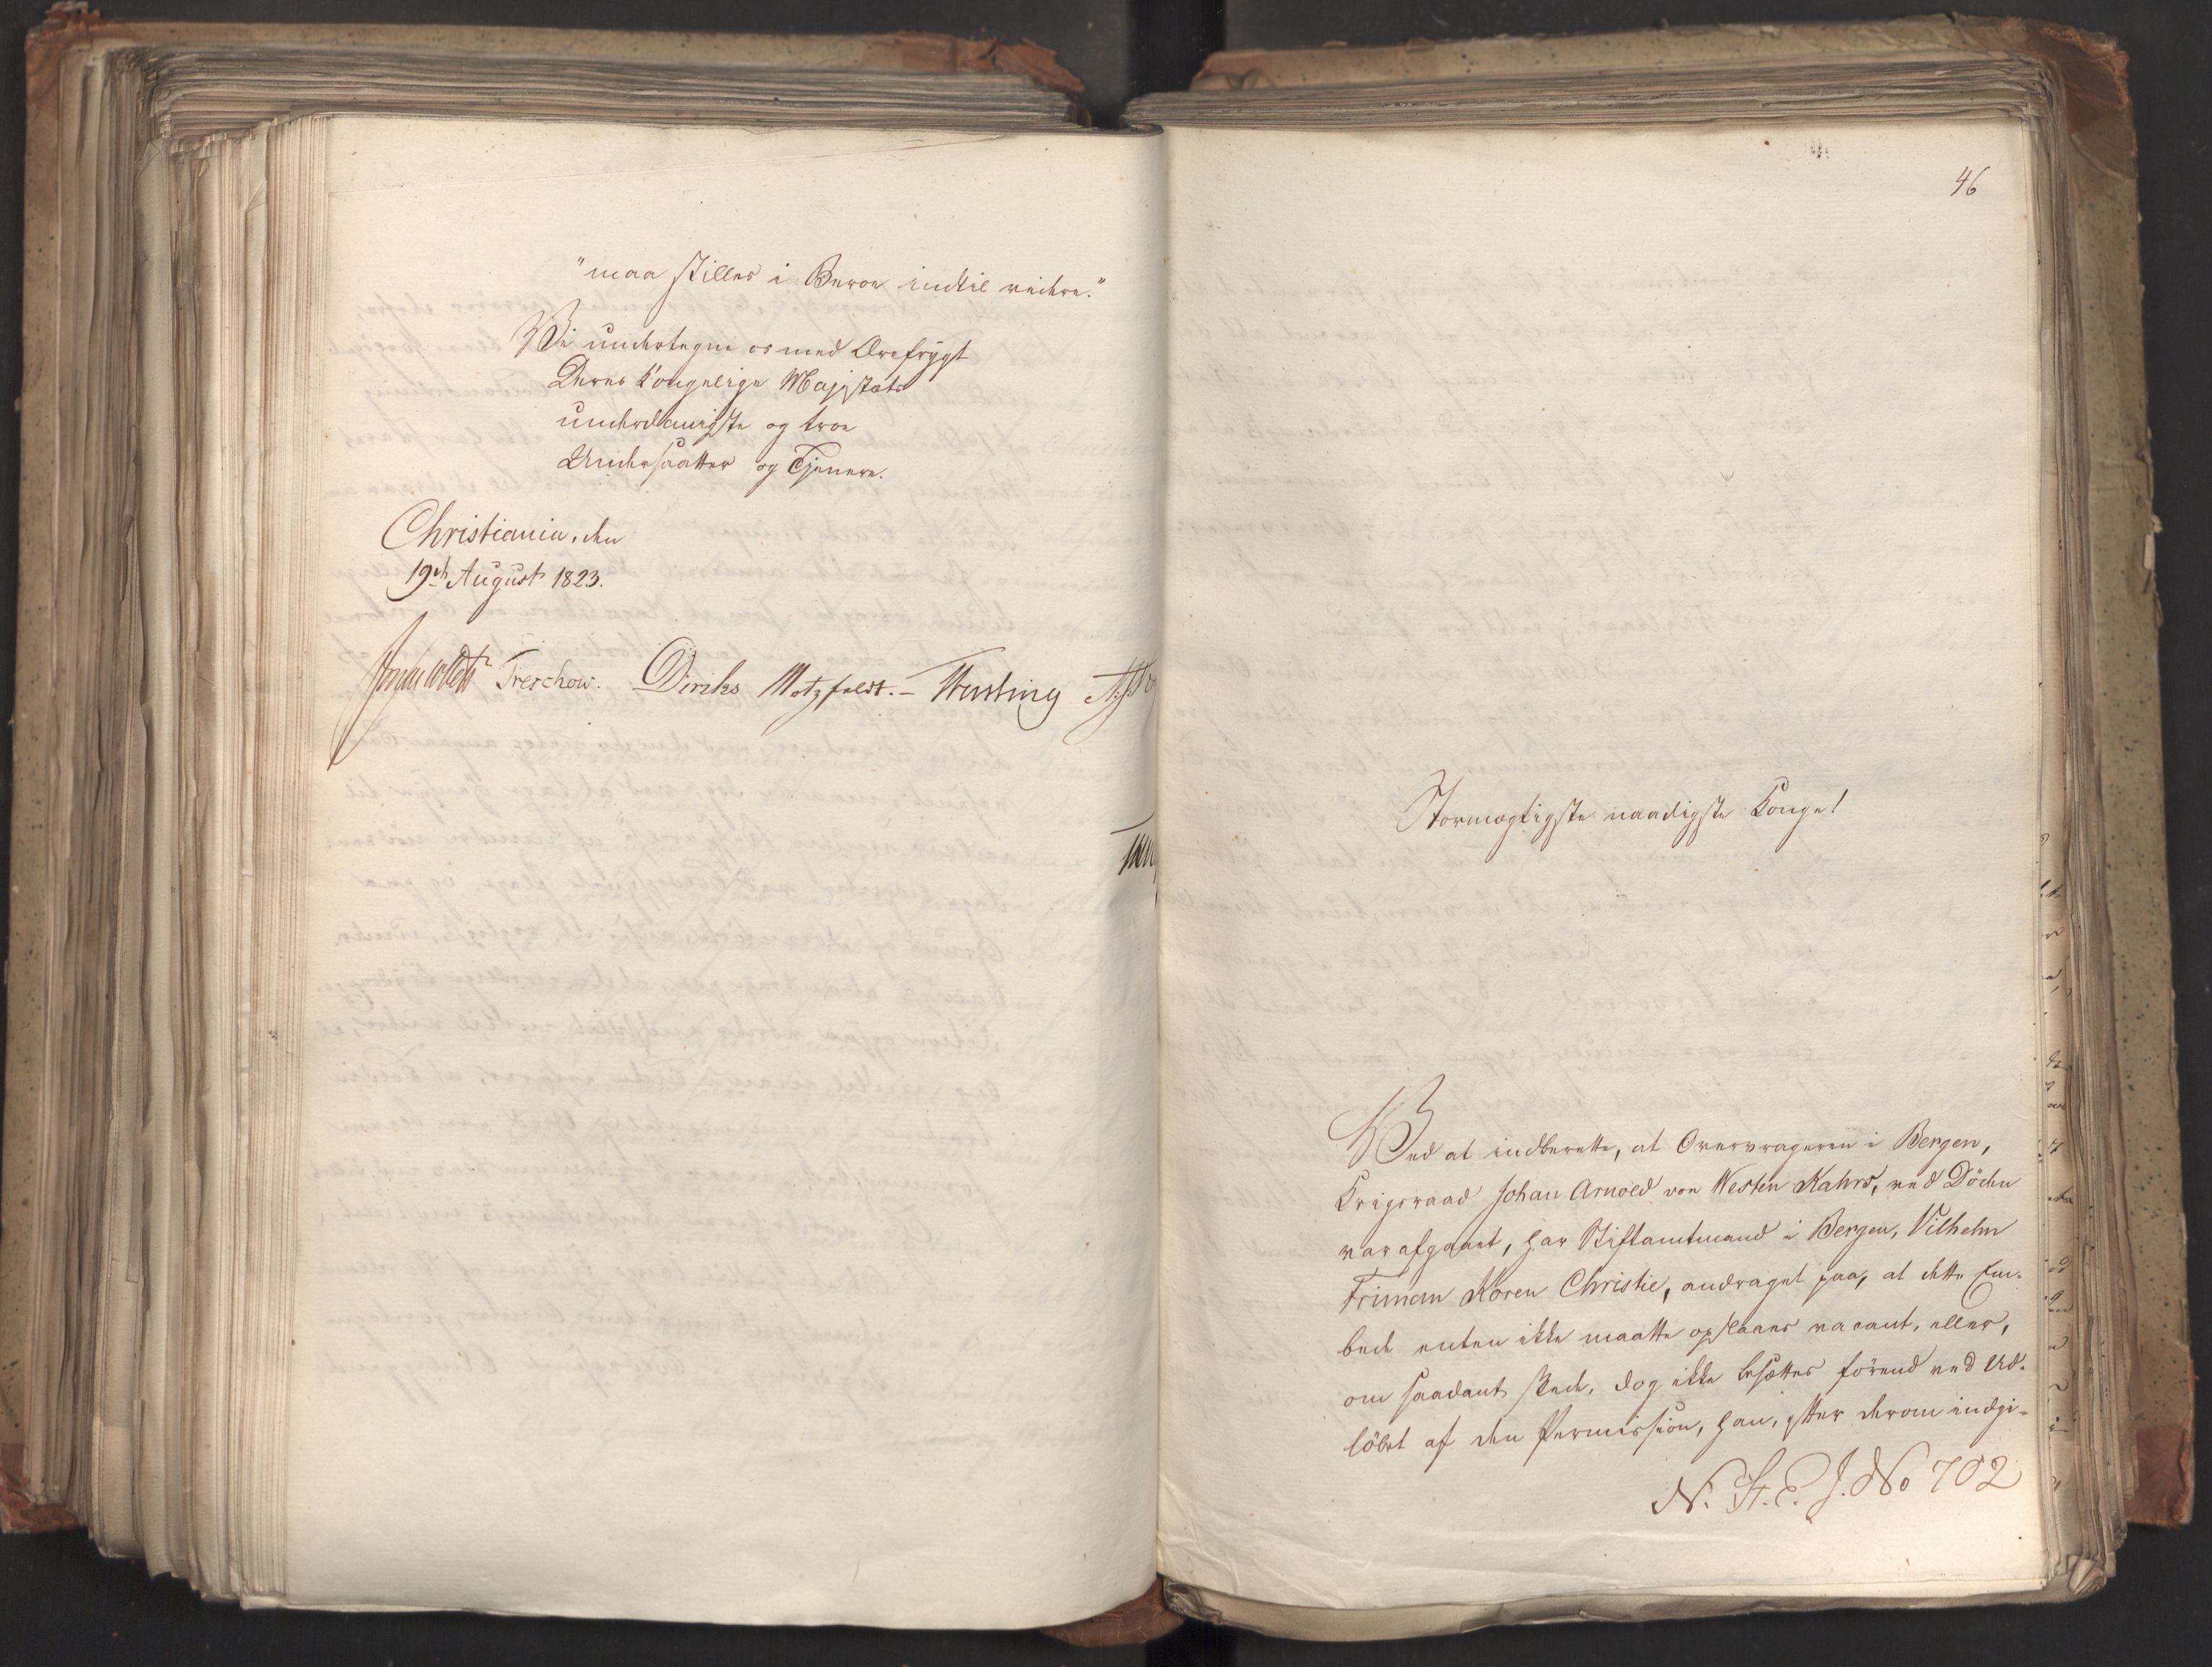 "maa stilles i Beroe indtil videre."
Vi undertegne os med Ærefrygt
Deres Kongelige Majestæts
underdanigste og troe
Undersaatter og Tjenere.
Christiania, den
19de August 1823.
Treschow. Diriks Motzfeldt. –
46
Stormægtigste naadigste Konge!
Ved at indberette, at Overvrageren i Bergen,
Krigsraad Johan Arnold von Westen Kahrs, ved Döden
var afgaaet, har Stiftamtmand i Bergen, Vilhelm
Friman Koren Christie, andraget paa, at dette Em-
bede enten ikke maatte opslaaes vacant, eller,
om saadant skede, dog ikke besættes förend ved Ud-
löbet af den Permission, han, efter derom indgi-
N. St. E. J. No 702